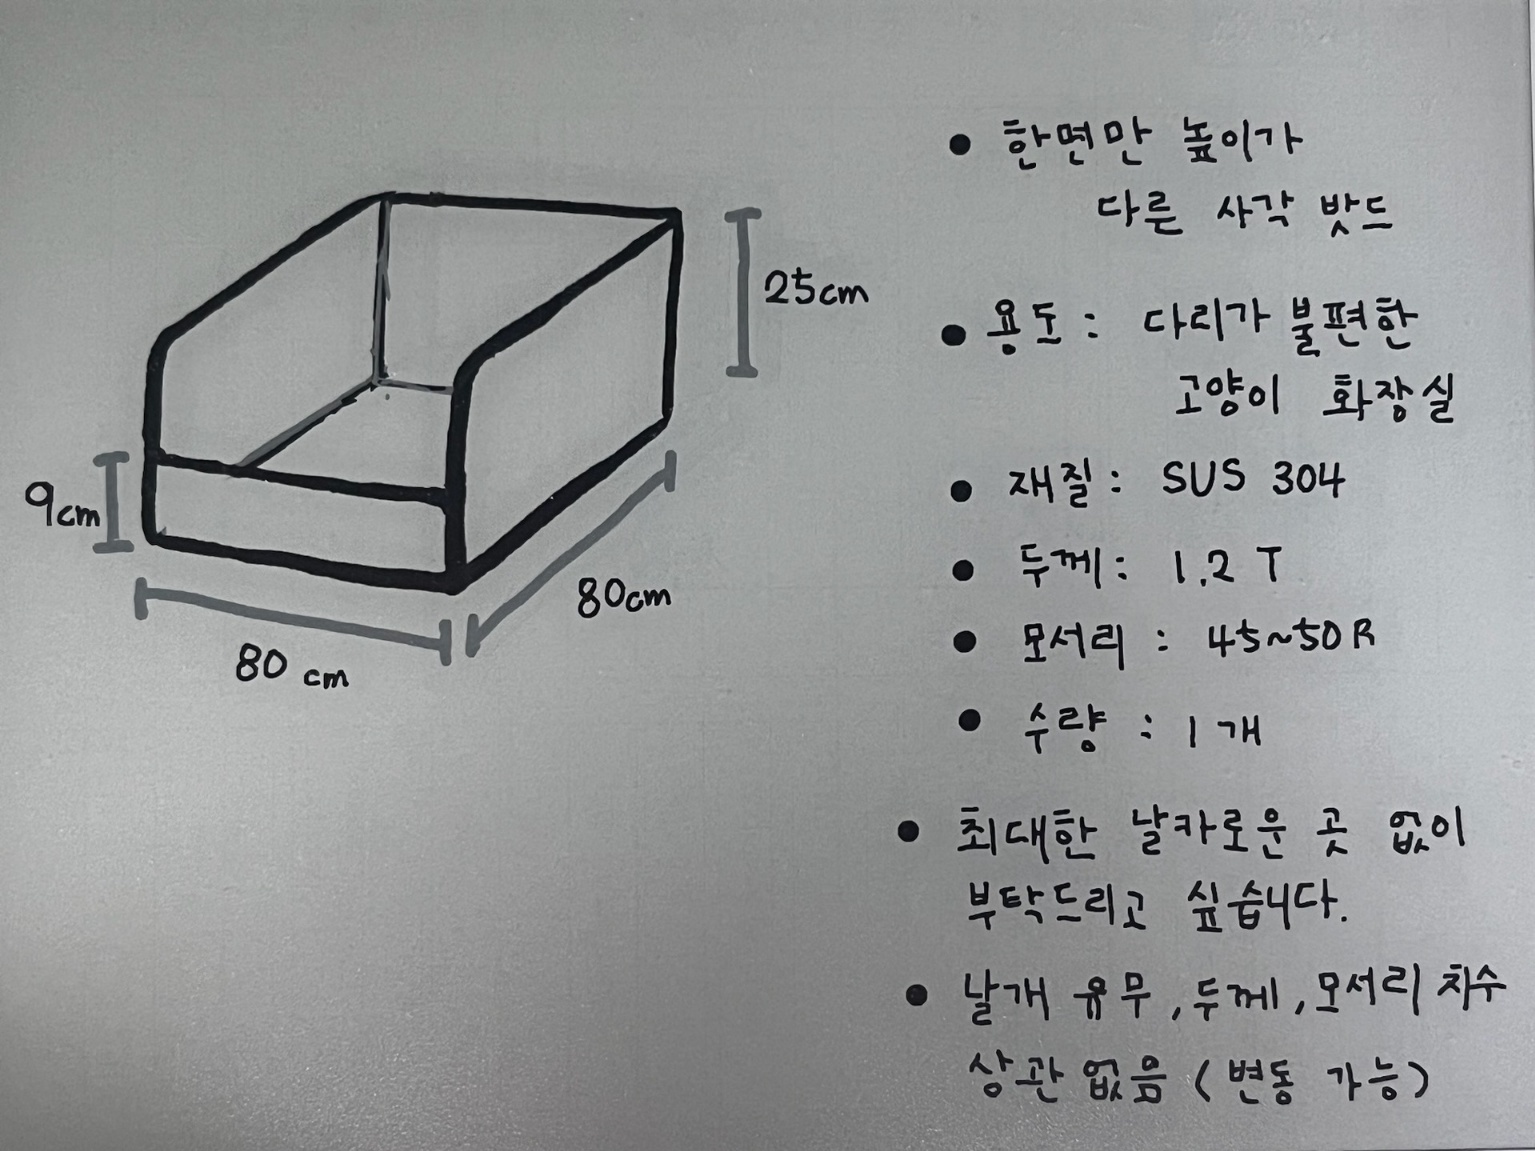 25cm
9cm
80cm
80 cm
• 한면만 높이가
다른 사각 밧드
• 용도 : 다리가 불편한
고양이 화장실
• 재질 : SUS 304
• 두께 : 1.2 T
• 모서리 : 45~50R
• 수량 : 1개
• 최대한 날카로운 곳 없이
부탁드리고 싶습니다.
• 날개 유무, 두께, 모서리 치수
상관 없음 (변동 가능)